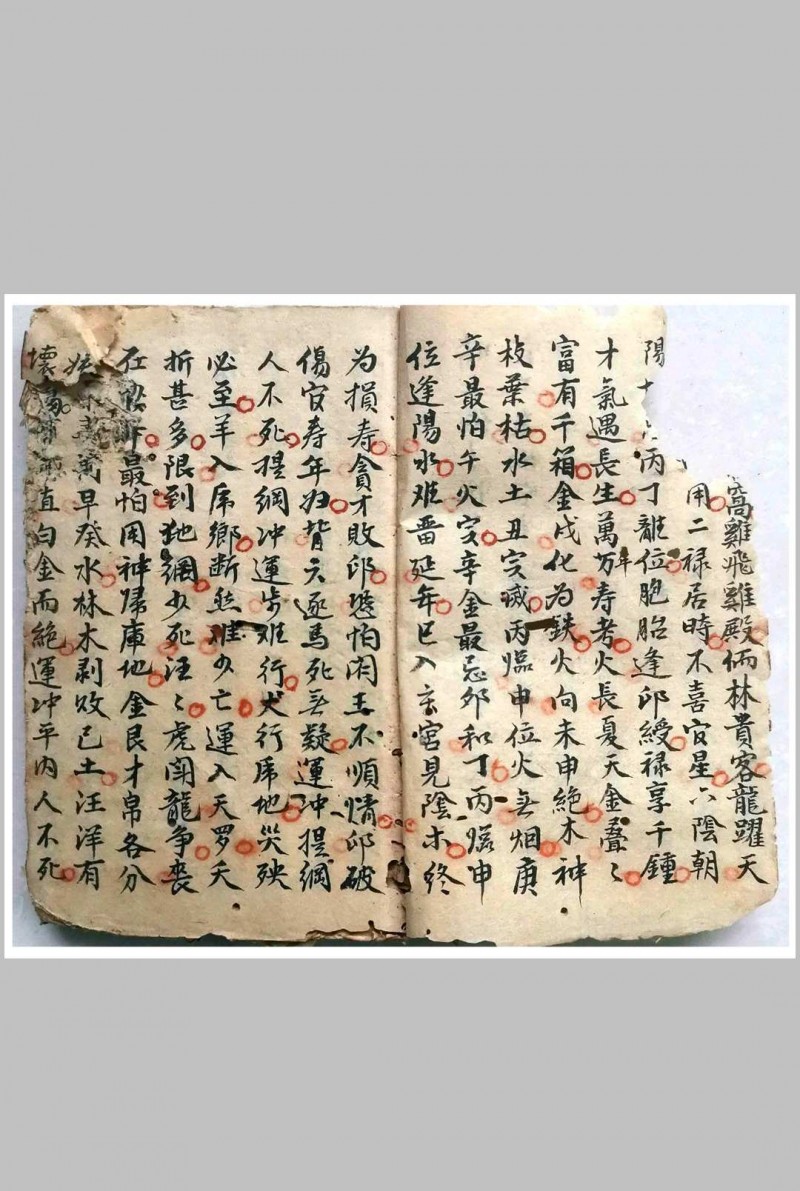 窩雞飛雞殿伂林貴客龍躍天
用二禄居時不喜官星六陰朝
陽丙丁離位胞胎逢印綬禄享千鍾
才氣遇長生萬万年寿考火長夏天金叠〻
富有千箱金戌化為鉄火向未申絶木神
枝葉枯水土丑亥滅丙臨申位火無烟庚
辛最怕午火亥辛金最忌夘和丁丙臨申
位逢陽水难番延年巳入亥宮見陰木終
为損寿貪才敗印越怕闲主不順情印破
傷官寿年妇背六逐馬死無疑運冲提綱
人不死提綱冲運步难行犬行虎地災殃
必至羊入虎鄉断然难少亡運入天罗夭
折甚多限到地網少死汪〻虎闹龍争喪
在最怕用神歸庫地金艮才帛各分
萬早癸水林木剥敗己土汪洋有
壞直白金而絕運冲平内人不死